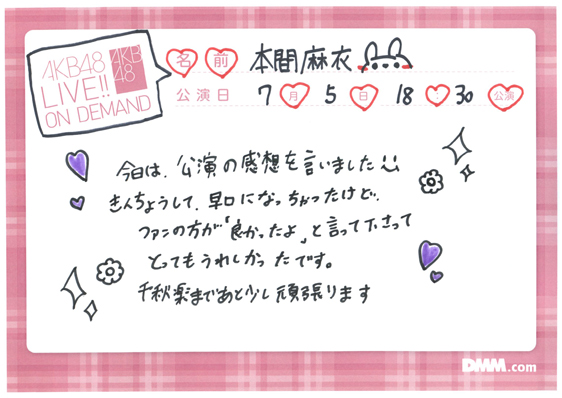 AKB48
LIVE!!
ON DEMAND
AKB
48
名前 本間麻衣
公演日 7月5日 18:30公演
今日は、公演の感想を言いました
きんちょうして、早口になっちゃったけど、
ファンの方が「良かったよ」と言って下さって
とってもうれしかったです。
千秋楽まであと少し頑張ります
DMM.com